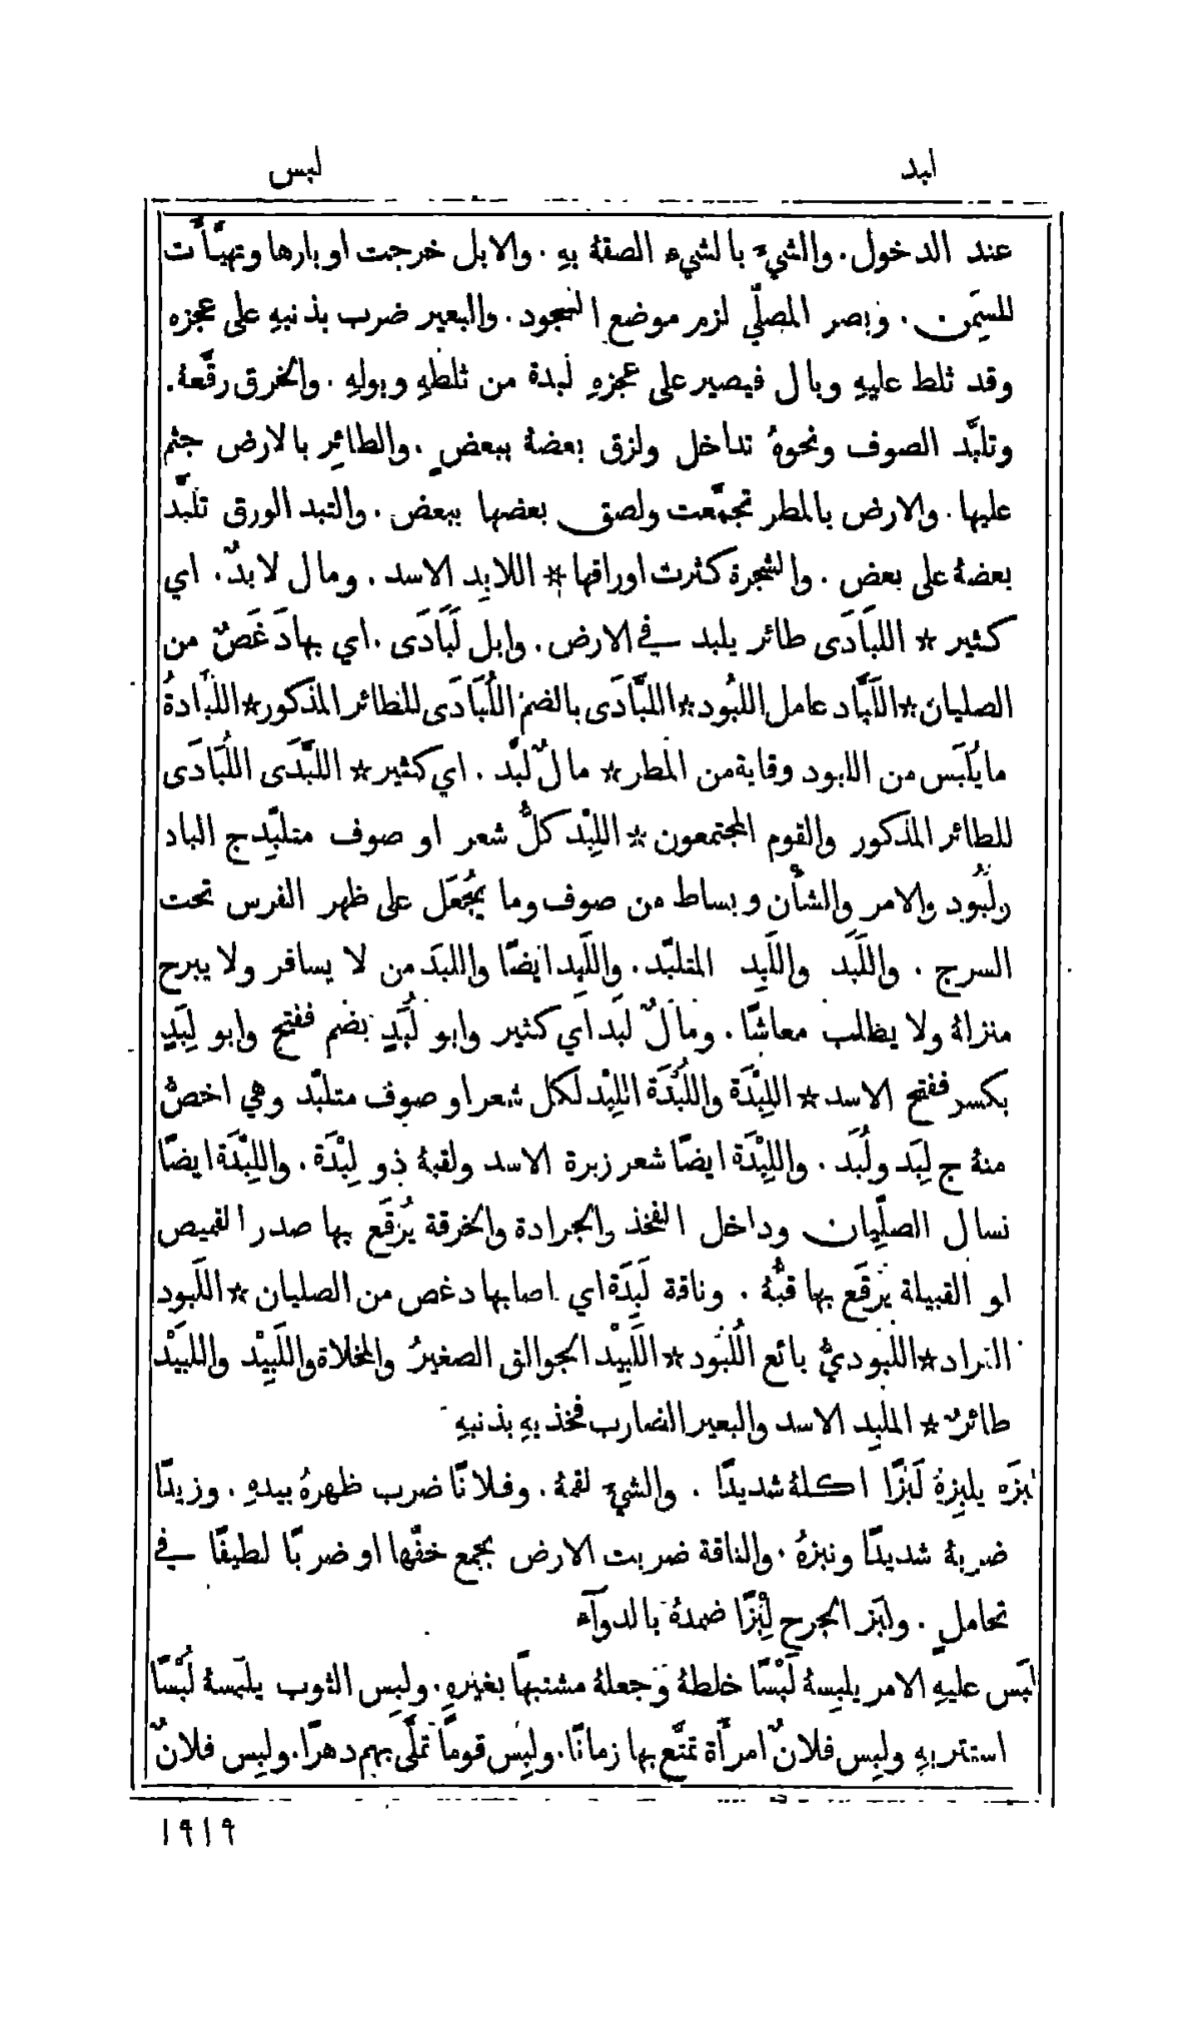 لبد
لبس
عند الدخول. والشيءَ بالشيء الصقهُ بهِ. والابل خرجت اوبارها وتهيَّأَت
للسِمَن. وبصر المصلّي لزم موضع السجود. والبعير ضرب بذنبهِ على عجزه
وقد ثلط عليهِ وبال فيصير على عجزهِ لبدة من ثلطهِ وبولهِ. والخرق رقَّعهُ.
وتلبَّد الصوف ونحوهُ تداخل ولزق بعضهُ ببعضٍ. والطائِر بالارض جثم
عليها. والارض بالمطر تجمَّعت ولصق بعضها ببعض. والتبد الورق تلبَّد
بعضهُ على بعض. والشجرة كثرت اوراقها * اللابِد الاسد. ومال لابدٌ. اي
كثير * اللبَادَى طائر يلبد في الارض. وابل لَبَادَى. اي بها دَغَصٌ من
الصليان * اللَبَّاد عامل اللبُود * اللبَّادَى بالضم اللُبَادَى للطائر المذكور * اللُبَّادةُ
ما يُلبَس من اللبود وقاية من المطر * مالٌ لُبَّد. اي كثير * اللُبَّدَى اللُبَادَى
للطائر المذكور والقوم المجتمعون * اللِبْد كلُّ شعر او صوف متلبّدٍ ج الباد
ولُبُود والامر والشأْن وبساط من صوف وما يُجْعَل على ظهر الفرس تحت
السرج. واللَبَد واللَبِد المتلبّد. واللَبِد ايضًا واللبَد من لا يسافر ولا يبرح
منزلهُ ولا يطلب معاشًا. ومالٌ لُبَد اي كثير وابو لُبَدٍ بضم ففتح وابو لِبَدٍ
بكسر ففتح الاسد * اللِبْدَة واللُبْدَة اللِبْد لكل شعر او صوف متلبّد وهي اخصُّ
منهُ ج لِبَد ولُبَد. واللِبْدَة ايضًا شعر زبرة الاسد ولقبهُ ذو لِبْدَة. واللِبْدَة ايضًا
نسال الصلِّيان وداخل الفخذ والجرادة والخرقة يُرْقَع بها صدر القميص
او القبيلة يُرقَع بها قبُّهُ. وناقة لَبِدَة اي اصابها دغص من الصليان * اللَبود
القراد * اللُبُوديُّ بائع اللُبُود * اللَبِيْد الجوالق الصغيرُ والمخلاة واللَبِيْد واللُبَيْد
طائرٌ * الملبِد الاسد والبعير الضارب فخذيهِ بذنبهِ
لبزَه يلبِزهُ لَبْزًا اكلهُ شديدًا. والشيءَ لقمهُ. وفلانًا ضرب ظهرهُ بيدهِ. وزيدًا
ضربهُ شديدًا ونبزهُ. والناقة ضربت الارض بجمع خفّها او ضربًا لطيفًا في
تحاملٍ. ولبَز الجرح لِبْزًا ضمدهُ بالدوآء
لبَس عليهِ الامر يلبِسهُ لَبْسًا خلطهُ وجعلهُ مشتبهًا بغيرهِ. ولبِس الثوب يلبَسهُ لُبْسًا
استتر بهِ ولبِس فلانٌ امرأَة تمتَّع بها زمانًا. ولبِس قومًا تملَّى بهم دهرًا. ولبِس فلانٌ
١٩١٩